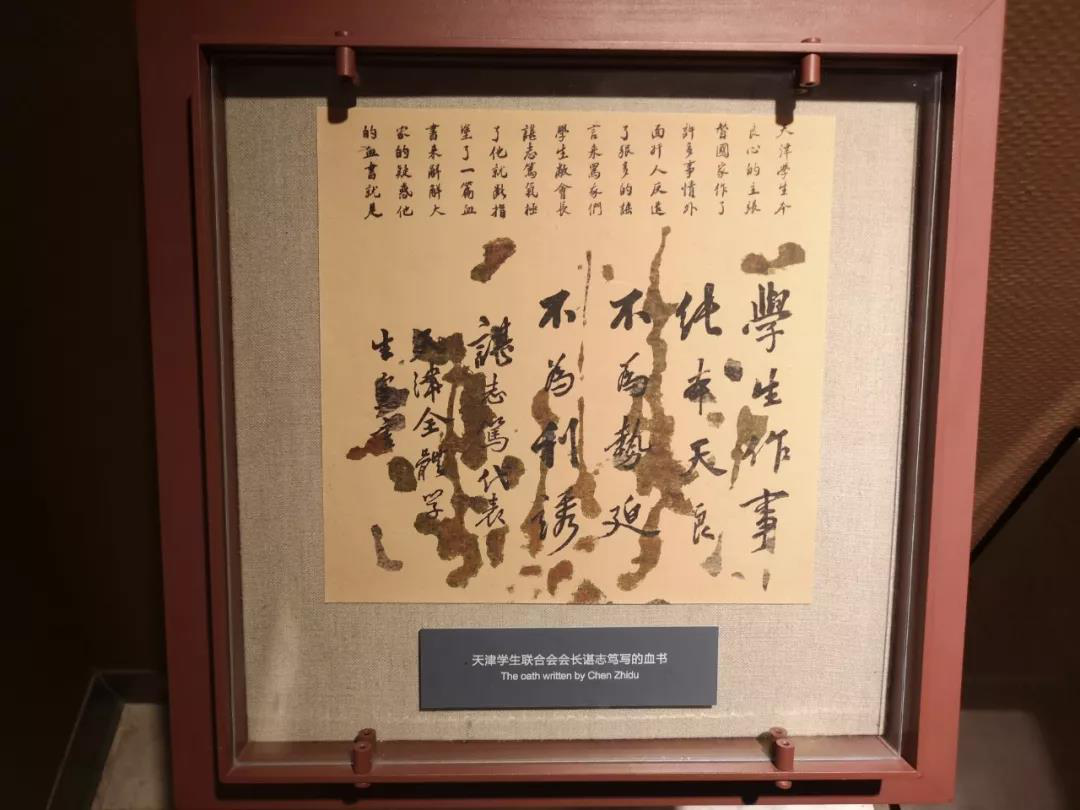 天津學生本
良心的主張
替國家作了
許多事情外
面奸人反造
了狠多的謠
言来罵我們
學生敝會長
諶志篤氣極
了他就断指
了一篇血
書来解解大
家的疑惑他
的血書就是
學生作事
純本天良
不為勢迫
不為利誘
諶志篤代表
天津全體学
生
天津学生联合会会长谌志笃写的血书
The oath written by Chen Zhidu